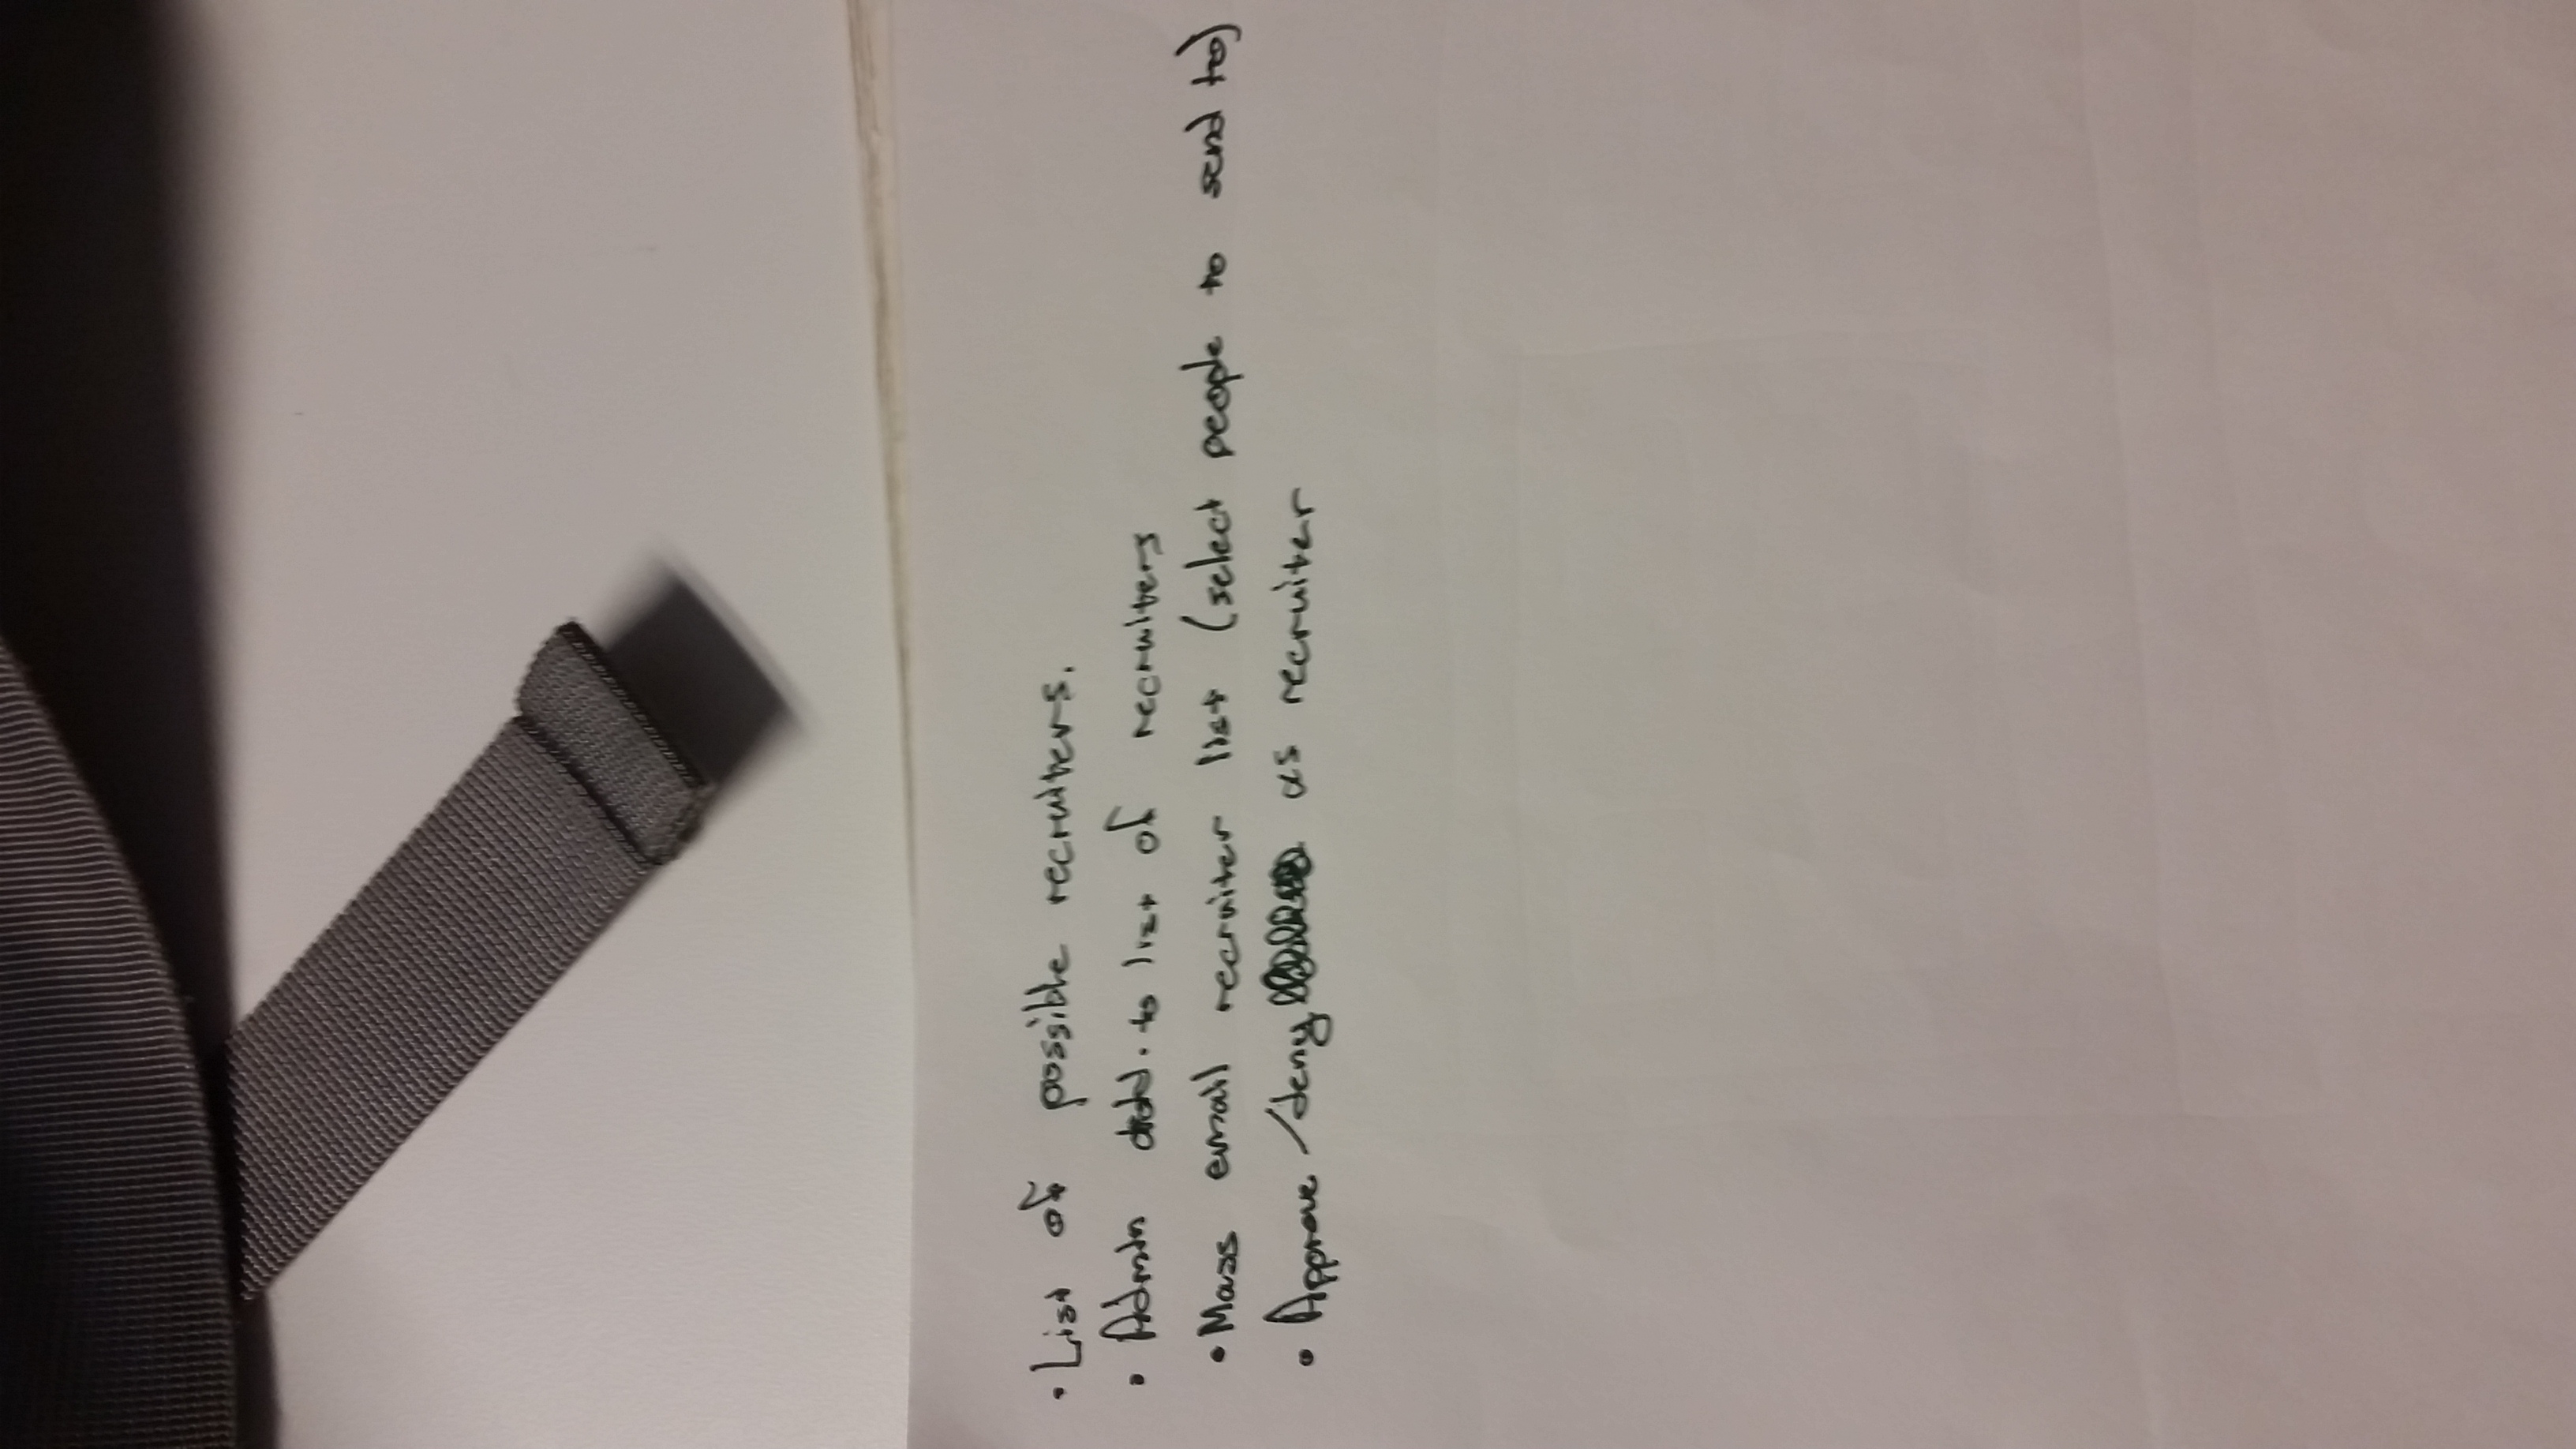 • List of possible recruiters.
• Admin add. to list of recruiters
• Mass email recruiter list (select people to send to)
• Approve/deny as recruiter